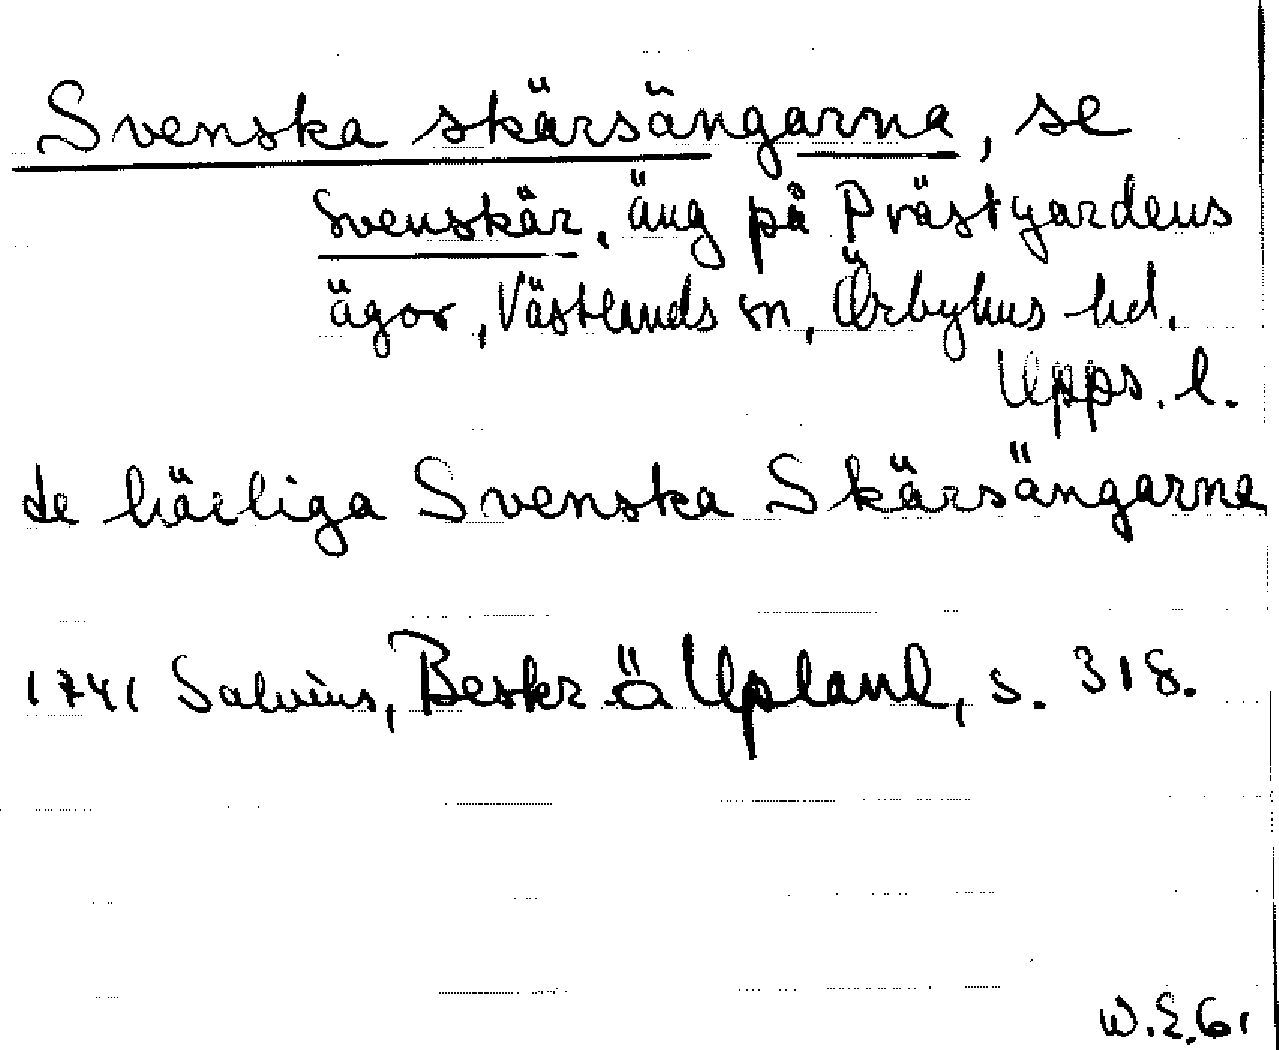 Svenska skärsängarna, se
Svenskär, äng på Prästgårdens
ägor, Västlands sn, Örbyhus hd,
Upps. l.
de härliga Svenska Skärsängarna
1741 Salvius, Beskr ö Upland, s. 318.
W.E.61